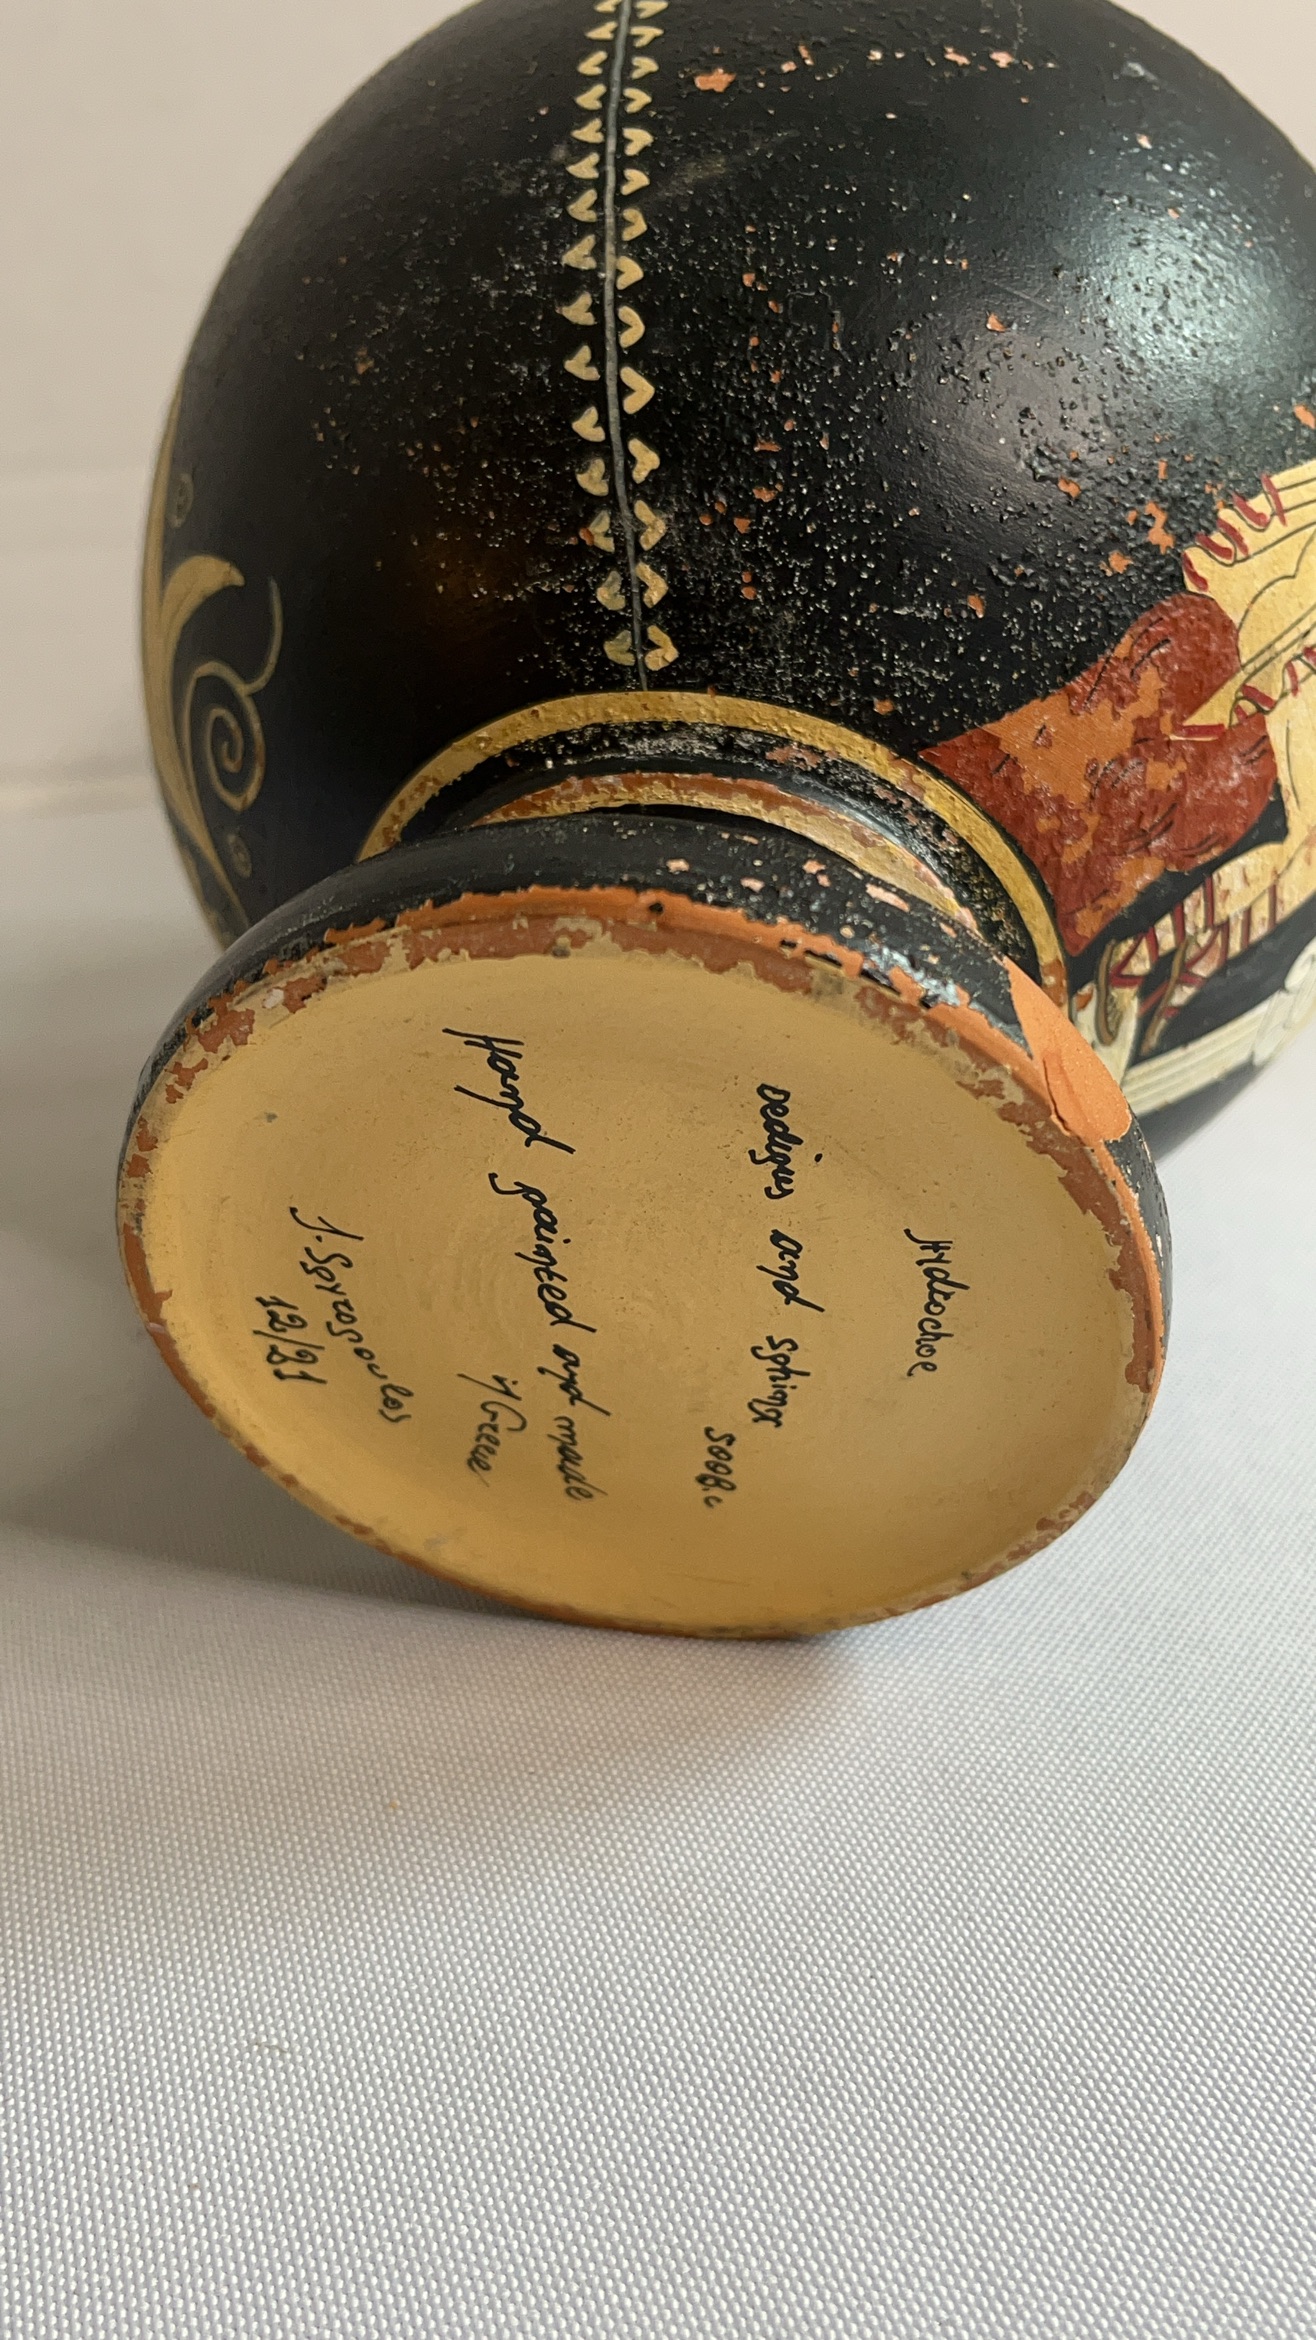 Hydrochoe
oedipus and Sphinx
500B.c
Hand painted and made
in Greece
J. Spyropoulos
12/21